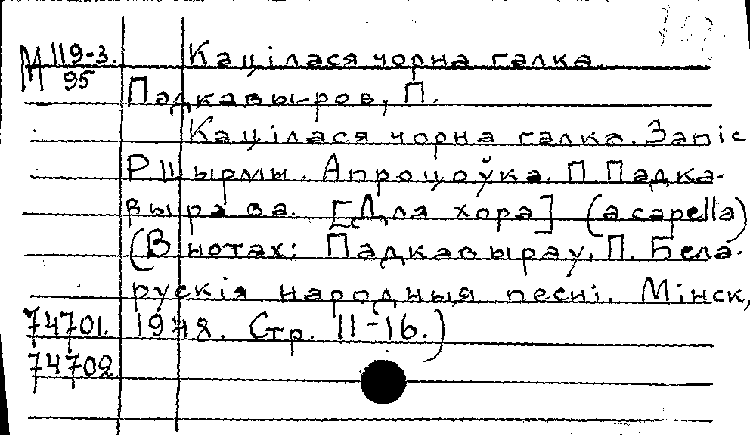 М 119-3.
95
Кацілася чорна галка.
Падкавыров, П.
Кацілася чорна галка. Запіс
Р Шырмы. Апроцоўка. П. Падка-
вырава. [Для хора] (a capella)
(В нотах: Падкавыраў, П. Бела-
рускія народныя песні. Мінск,
74701. 1948. Стр. 11-16.)
74702